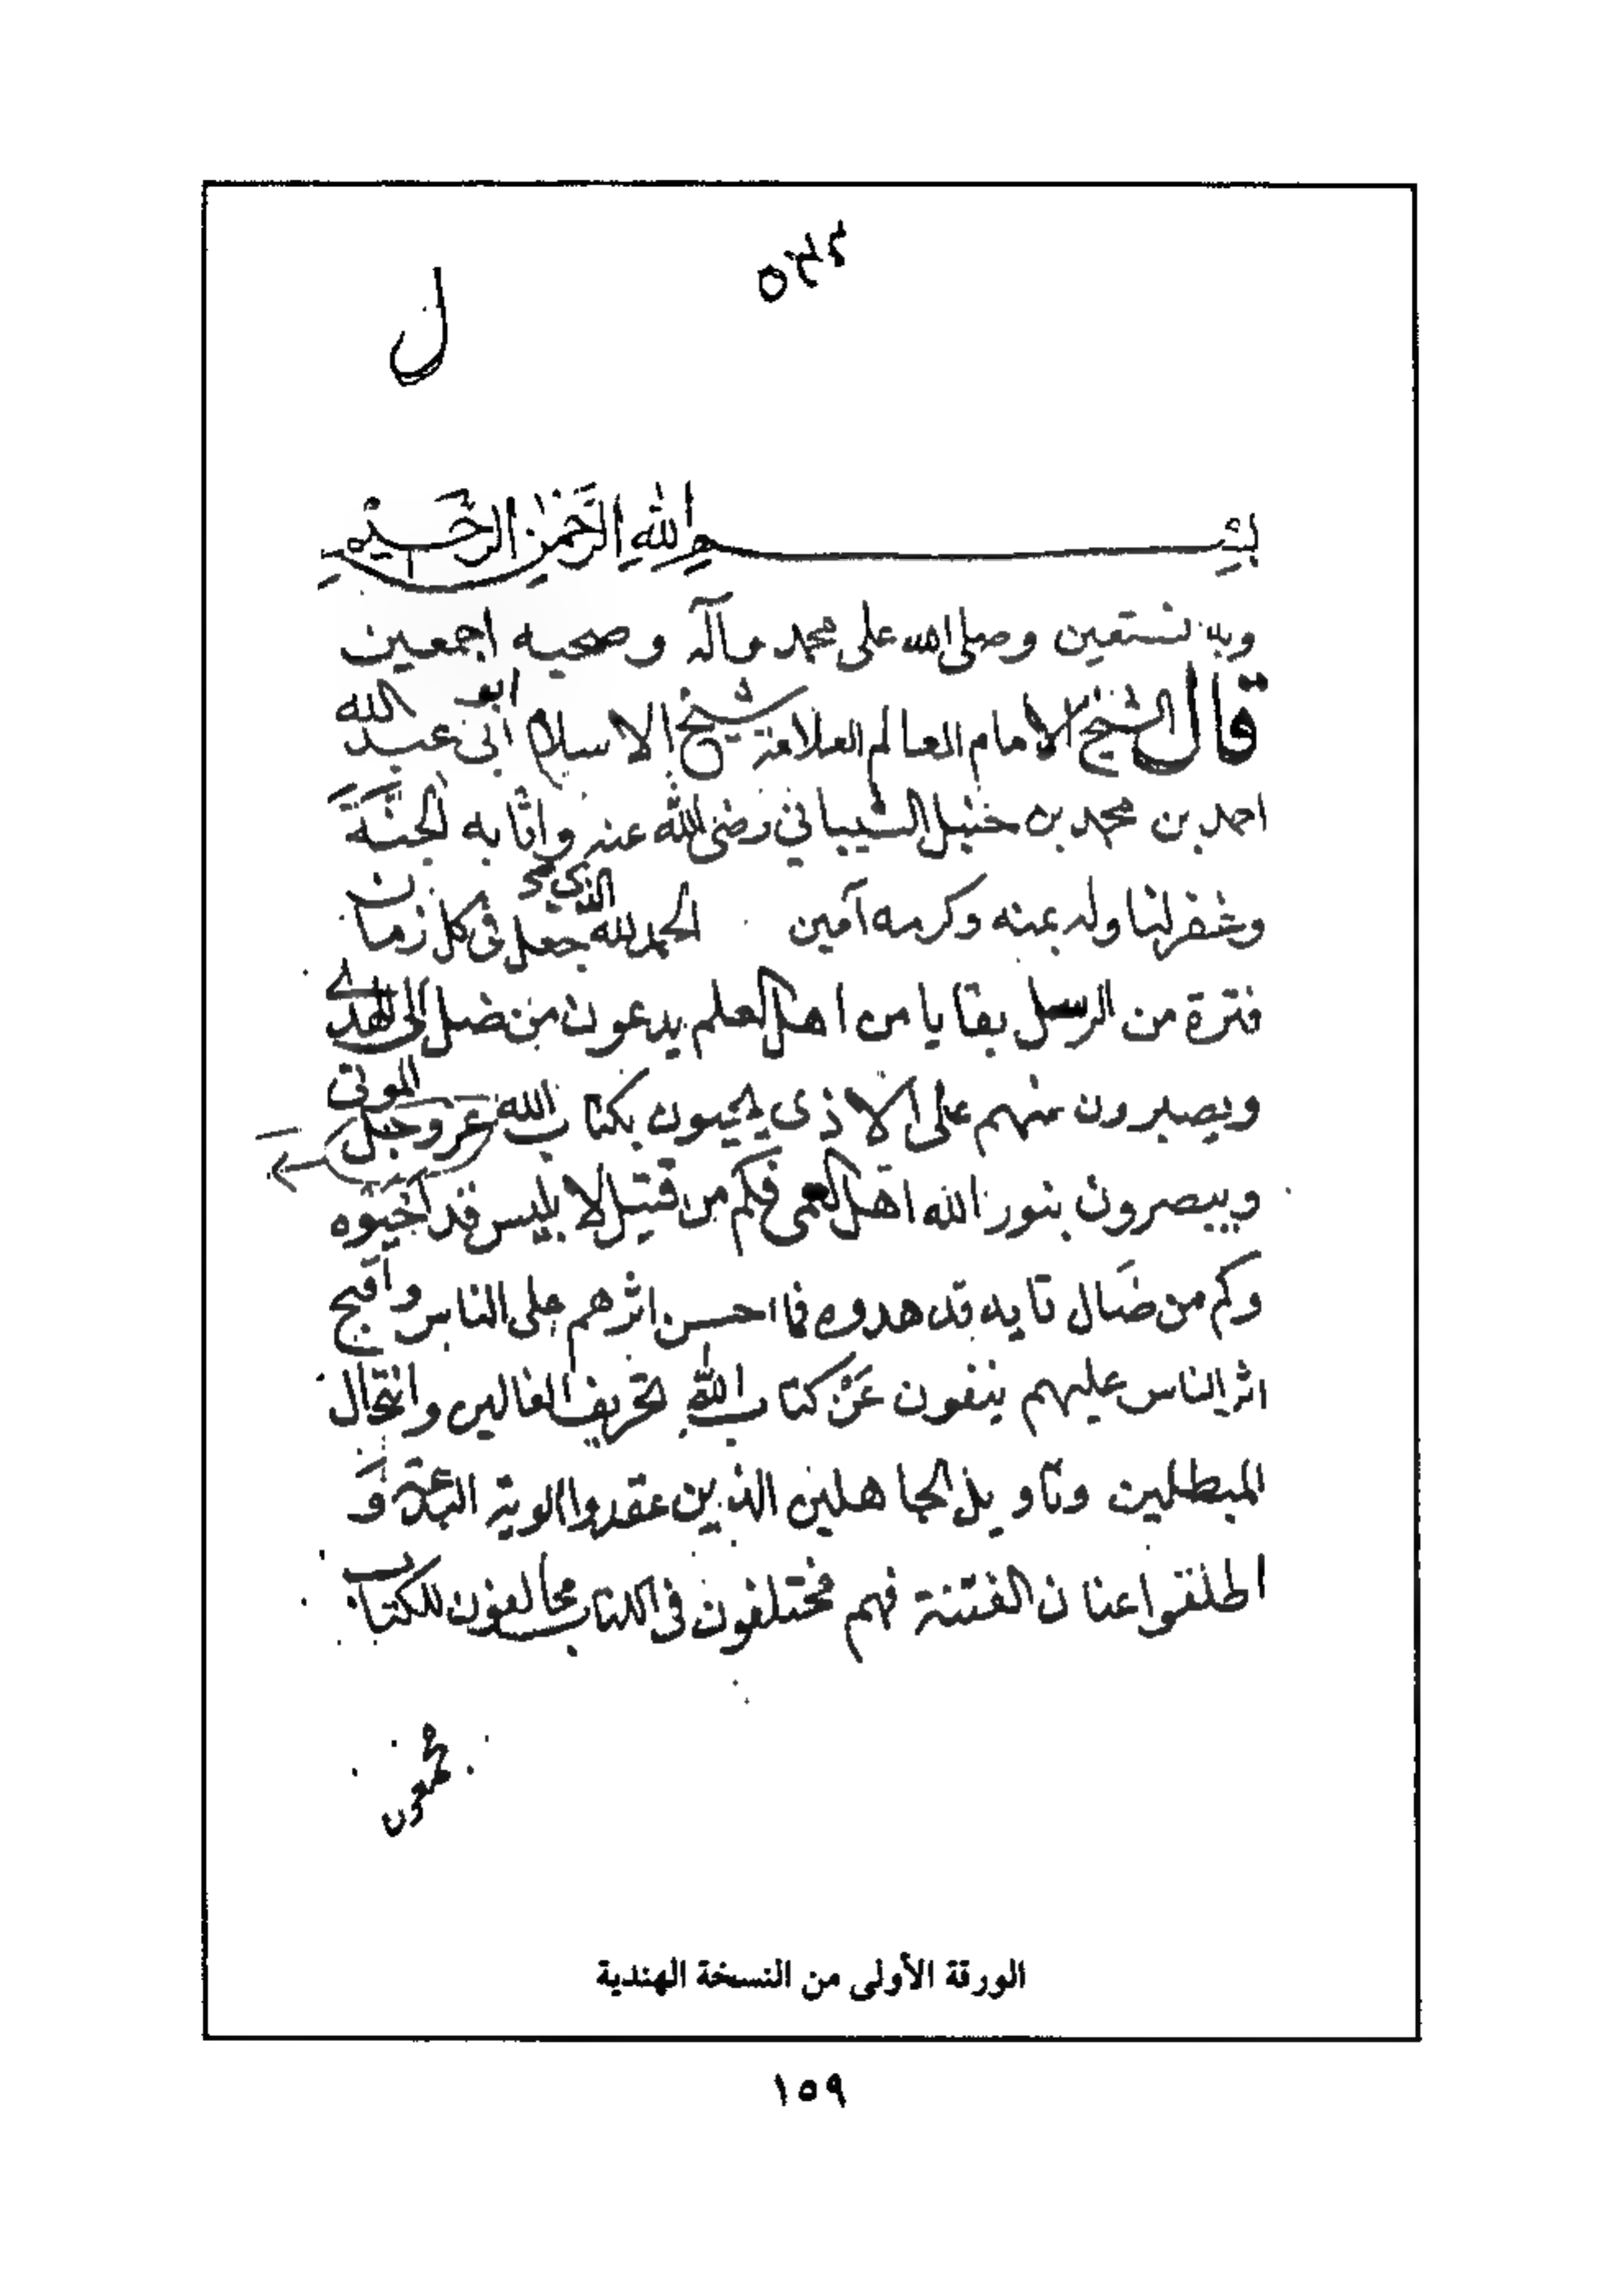 ل
بسم الله الرحمن الرحيم
وبه نستعين وصلى الله على محمد وآله وصحبه اجمعين
قال الشيخ الامام العالم العلامة شيخ الاسلام ابى ابو عبد الله
احمد بن محمد بن حنبل الشيباني رضى الله عنه واثابه الجنة
وغفر لنا وله بمنه وكرمه آمين الحمد لله الذي جعل فى كل زمان
فترة من الرسل بقايا من اهل العلم يدعون من ضل الى الهدى
ويصبرون منهم على الاذى يحيون بكتاب الله عز وجل الموتى
ويبصرون بنور الله اهل العمى فكم من قتيل لابليس قد احيوه
وكم من ضال تايه قد هدوه فما احسن اثرهم على الناس واقبح
اثر الناس عليهم ينفون عن كتاب الله تحريف الغالين وانتحال
المبطلين وتاويل الجاهلين الذين عقدوا الوية البدعة و
اطلقوا عنان الفتنة فهم مختلفون فى الكتاب مخالفون للكتاب
الورقة الأولى من النسخة الهندية
١٥٩